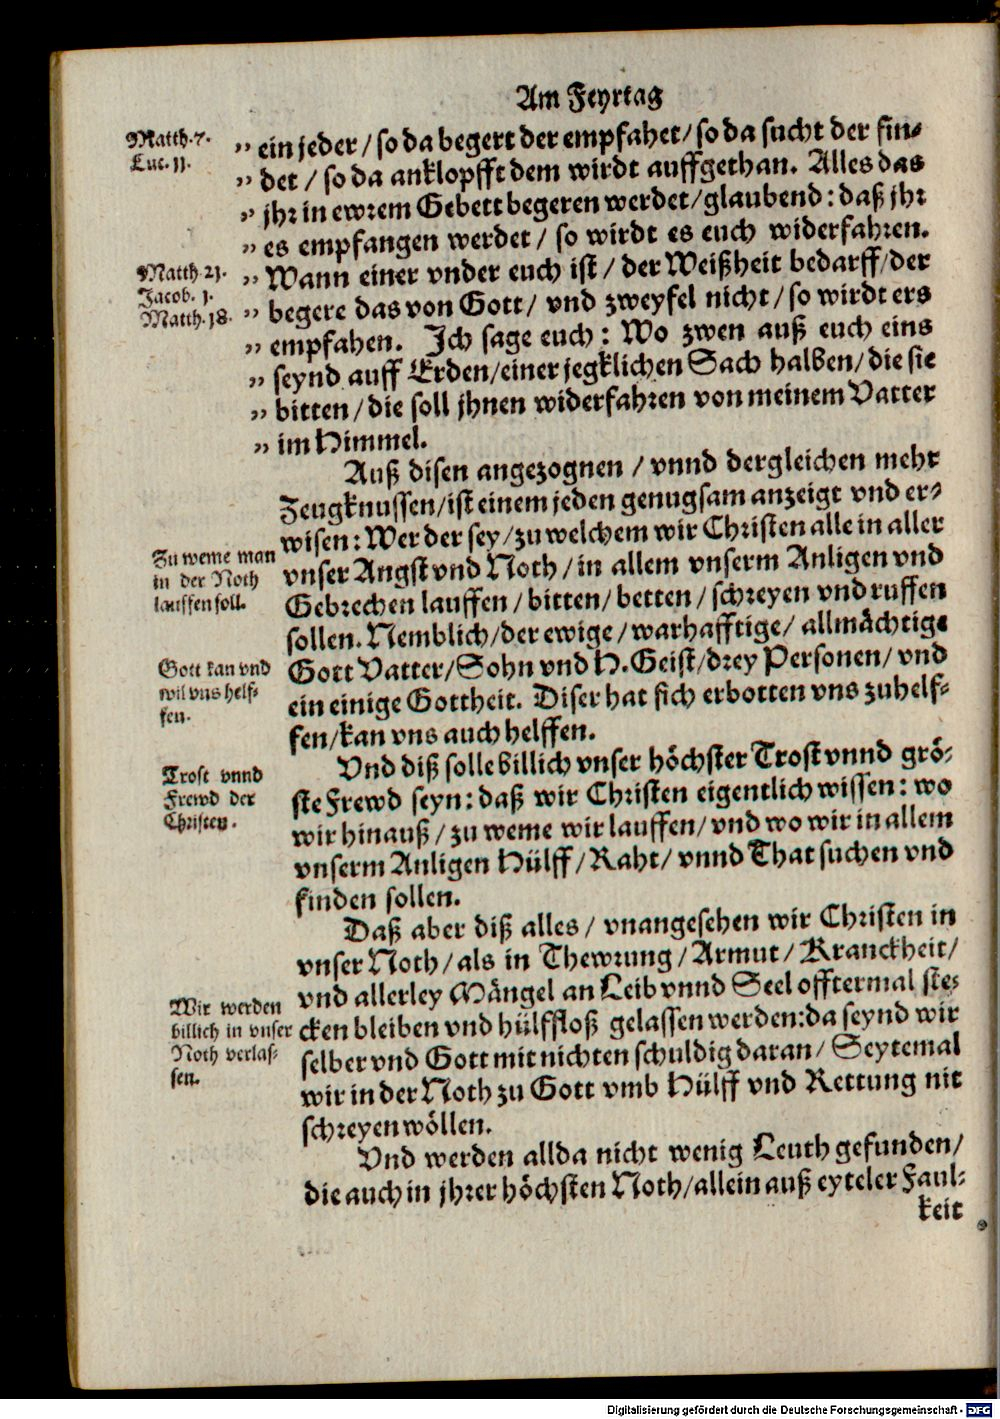 Am Feyrtag
Matth. 7.
Luc. 11.
„ ein jeder / so da begert der empfahet / so da sucht der fin-
„ det / so da anklopfft dem wirdt auffgethan. Alles das
„ jhr in ewrem Gebett begeren werdet / glaubend: daß jhr
„ es empfangen werdet / so wirdt es euch widerfahren.
Matth. 21.
Jacob. 1.
Matth. 18.
„ Wann einer vnder euch ist / der Weißheit bedarff / der
„ begere das von Gott / vnd zweyfel nicht / so wirdt ers
„ empfahen. Jch sage euch: Wo zwen auß euch eins
„ seynd auff Erden / einer jegklichen Sach halben / die sie
„ bitten / die soll jhnen widerfahren von meinem Vatter
„ im Himmel.
Auß disen angezognen / vnnd dergleichen mehr
Zeugknussen / ist einem jeden genugsam anzeigt vnd er-
wisen: Wer der sey / zu welchem wir Christen alle in aller
Zu weme man
in der Noth
lauffen soll.
vnser Angst vnd Noth / in allem vnserm Anligen vnd
Gebrechen lauffen / bitten / betten / schreyen vnd ruffen
sollen. Nemblich / der ewige / warhafftige / allmächtige
Gott kan vnd
wil vns helf-
fen.
Gott Vatter / Sohn vnd H. Geist / drey Personen / vnd
ein einige Gottheit. Diser hat sich erbotten vns zuhelf-
fen / kan vns auch helffen.
Trost vnnd
Frewd der
Christen.
Vnd diß solle billich vnser höchster Trost vnnd grö-
ste Frewd seyn: daß wir Christen eigentlich wissen: wo
wir hinauß / zu weme wir lauffen / vnd wo wir in allem
vnserm Anligen Hülff / Raht / vnnd That suchen vnd
finden sollen.
Daß aber diß alles / vnangesehen wir Christen in
vnser Noth / als in Thewrung / Armut / Kranckheit /
Wir werden
billich in vnser
Noth verlas-
sen.
vnd allerley Mängel an Leib vnnd Seel offtermal ste-
cken bleiben vnd hülffloß gelassen werden: da seynd wir
selber vnd Gott mit nichten schuldig daran / Seytemal
wir in der Noth zu Gott vmb Hülff vnd Rettung nit
schreyen wöllen.
Vnd werden allda nicht wenig Leuth gefunden /
die auch in jhrer höchsten Noth / allein auß eyteler Faul-
keit
Digitalisierung gefördert durch die Deutsche Forschungsgemeinschaft - DFG